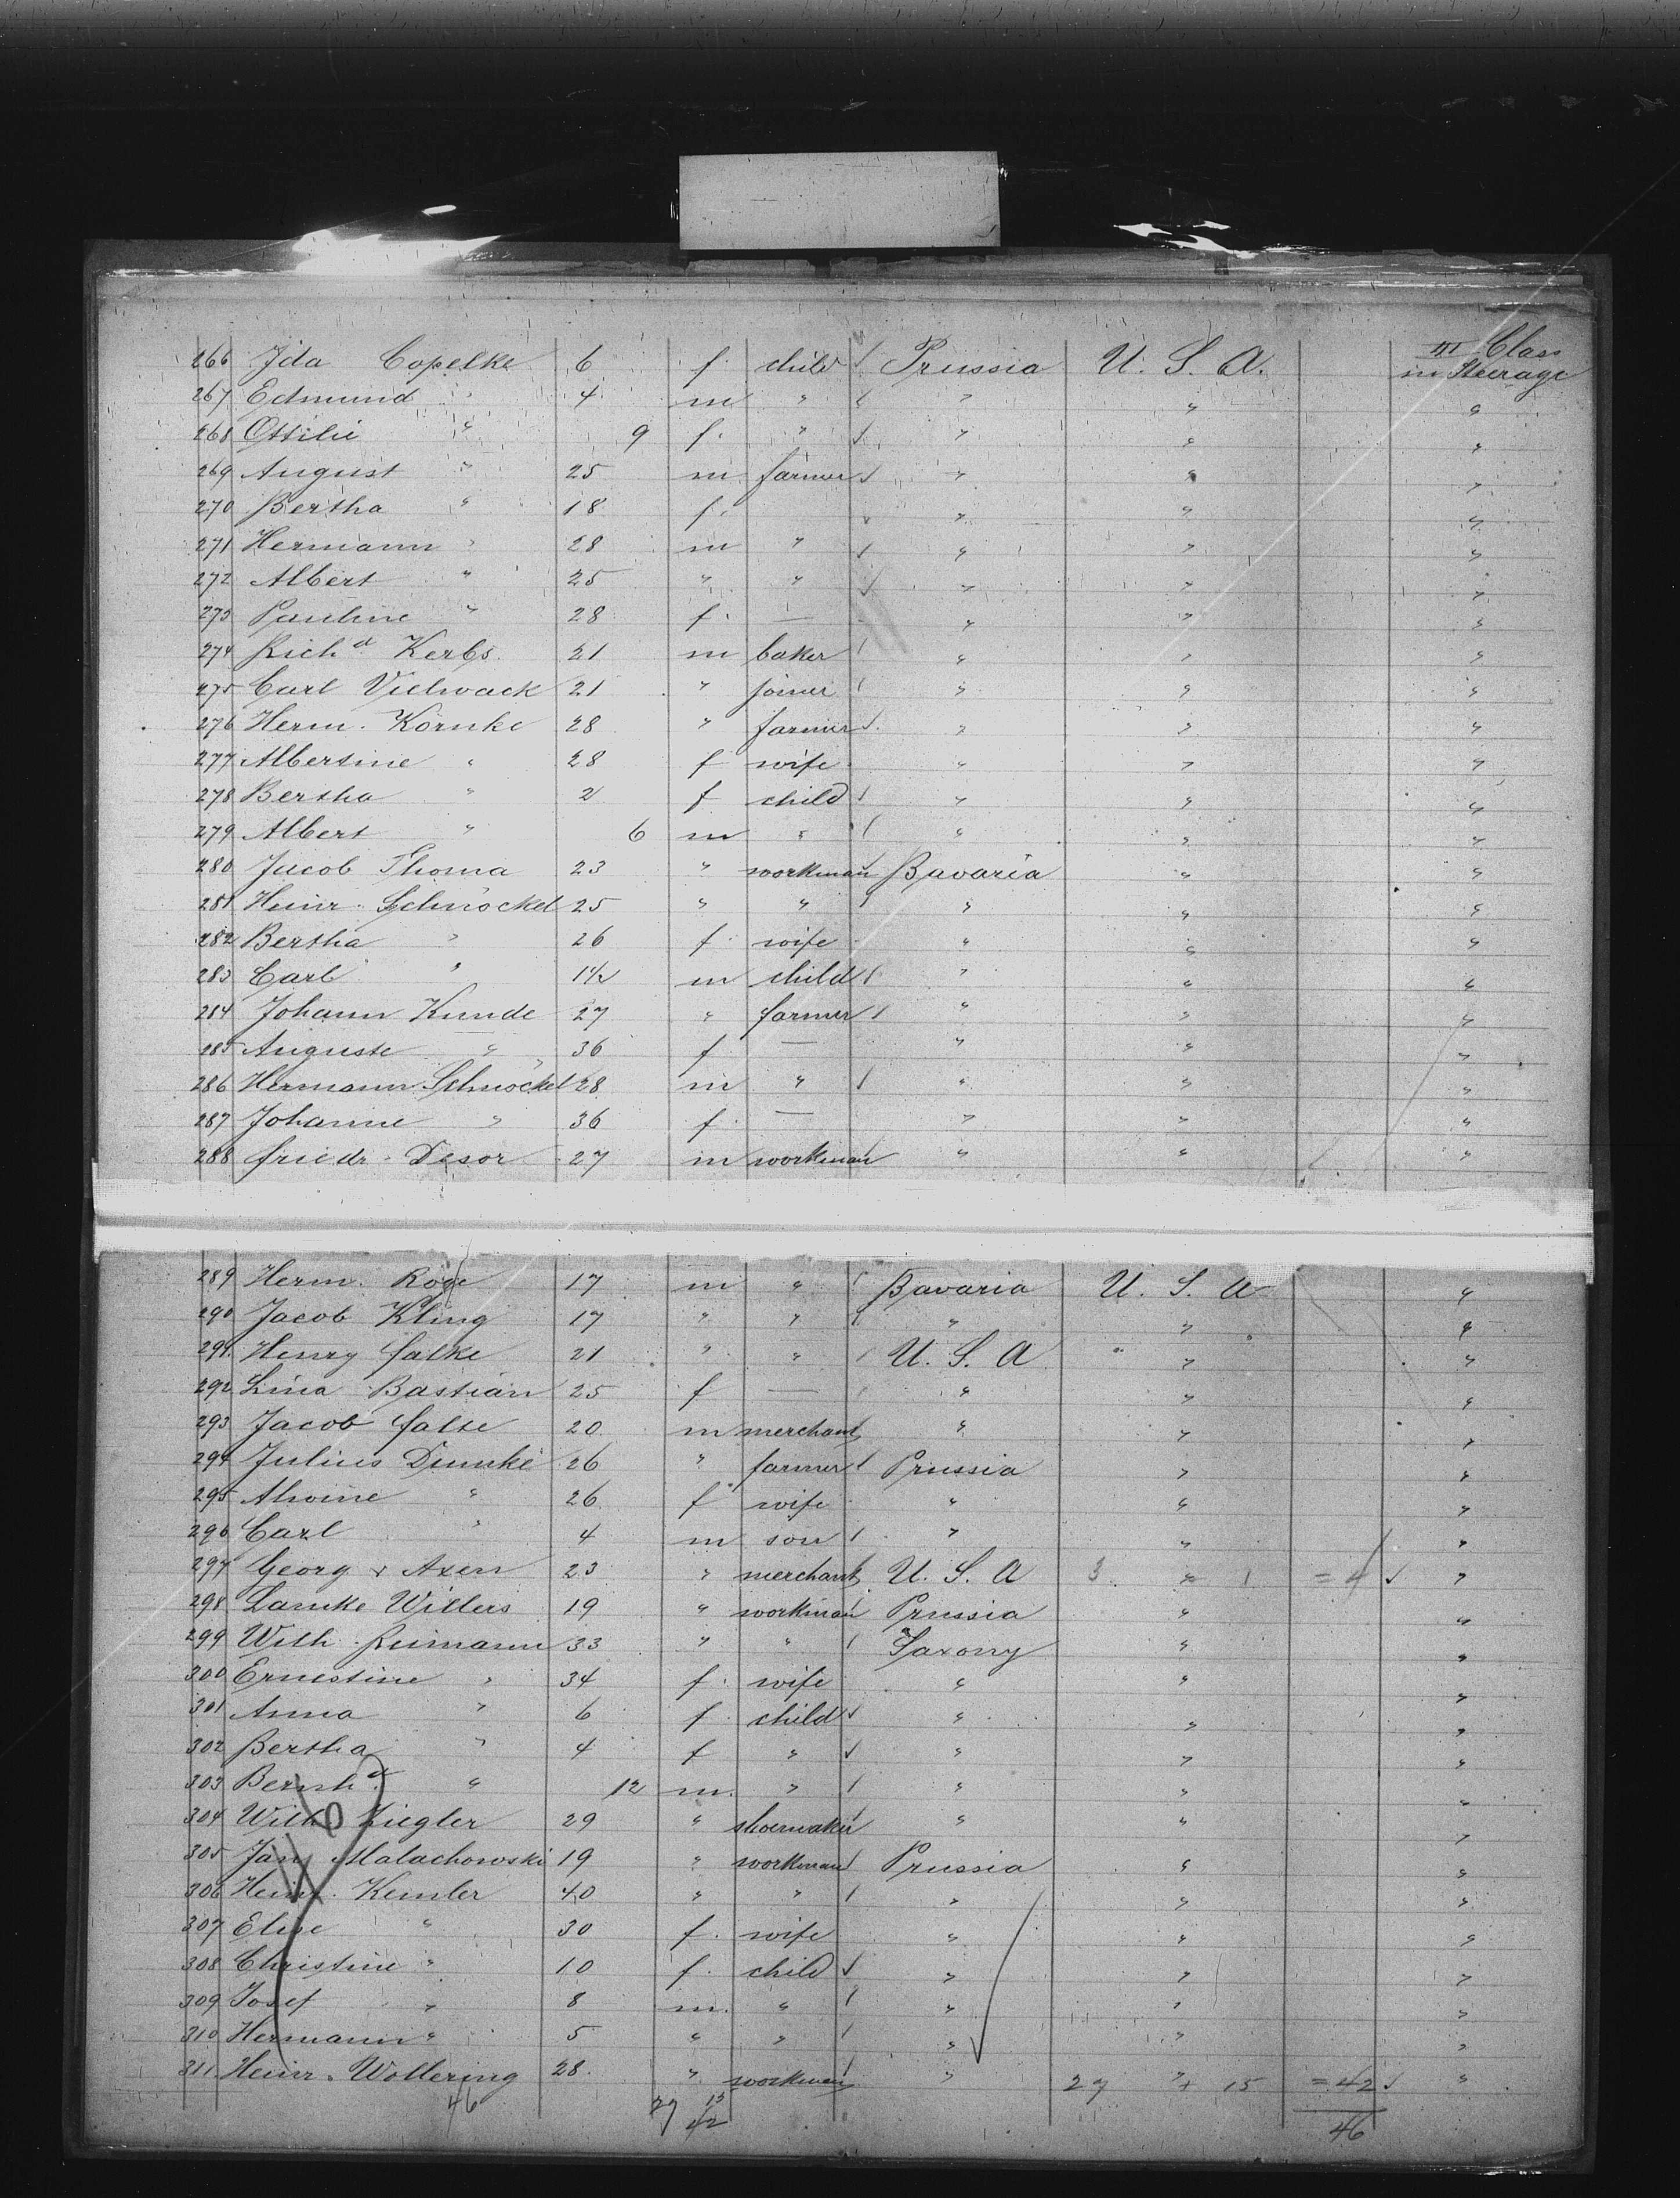 266 Ida Copelke 6 f. child Prussia U. S. A. III Class
in Steerage
267 Edmund " 4 m " " " "
268 Ottilie " 9 f. " " " "
269 August " 25 m. farmer " " "
270 Bertha " 18 f. " " "
271 Hermann " 28 m " " " "
272 Albert " 25 " " " " "
273 Pauline " 28 f. — " " "
274 Richd Kerbs 21 m baker " " "
275 Carl Vielwack 21 " joiner " " "
276 Herm. Körnke 28 " farmer " " "
277 Albertine " 28 f wife " " "
278 Bertha " 2 f child " " "
279 Albert " 6 m " " " "
280 Jacob Thoma 23 " workman Bavaria " "
281 Heinr. Schnöckel 25 " " " " "
282 Bertha " 26 f. wife " " "
283 Carl " 1½ m child " " "
284 Johann Kunde 27 " farmer " " "
285 Auguste " 36 f — " " "
286 Hermann Schnöckel 28 m " " " "
287 Johanne " 36 f — " " "
288 Friedr. Desor 27 m workman " " "
289 Herm. Roge 17 m " Bavaria U. S. A "
290 Jacob Kling 17 " " " " "
291 Henry Falke 21 " " U. S. A " "
292 Lina Bastian 25 f — " " "
293 Jacob Salse 20 m merchant " " "
294 Julius Dumke 26 " farmer Prussia " "
295 Alwine " 26 f wife " " "
296 Carl " 4 m son " " "
297 Georg x Axen 23 " merchant U. S. A 3 " 1 = 4 "
298 Lamke Willers 19 " workman Prussia " "
299 Wilh. Reimann 33 " " Saxony " "
300 Ernestine " 34 f. wife " " "
301 Anna " 6 f child " " "
302 Bertha " 4 f " " " "
303 Bernhd " 12 m. " " " "
304 Wilh. Ziegler 29 " shoemaker " " "
305 Jan Malachowski 19 " workman Prussia " "
306 Heinr. Kemler 40 " " " " "
307 Elise " 30 f. wife " " "
308 Christine " 10 f. child " " "
309 Josef " 8 m. " " " "
310 Hermann " 5 " " " " "
311 Heinr. Wollering 28. " workman " 27 " + 15 = 42 "
46 27 15
42 46